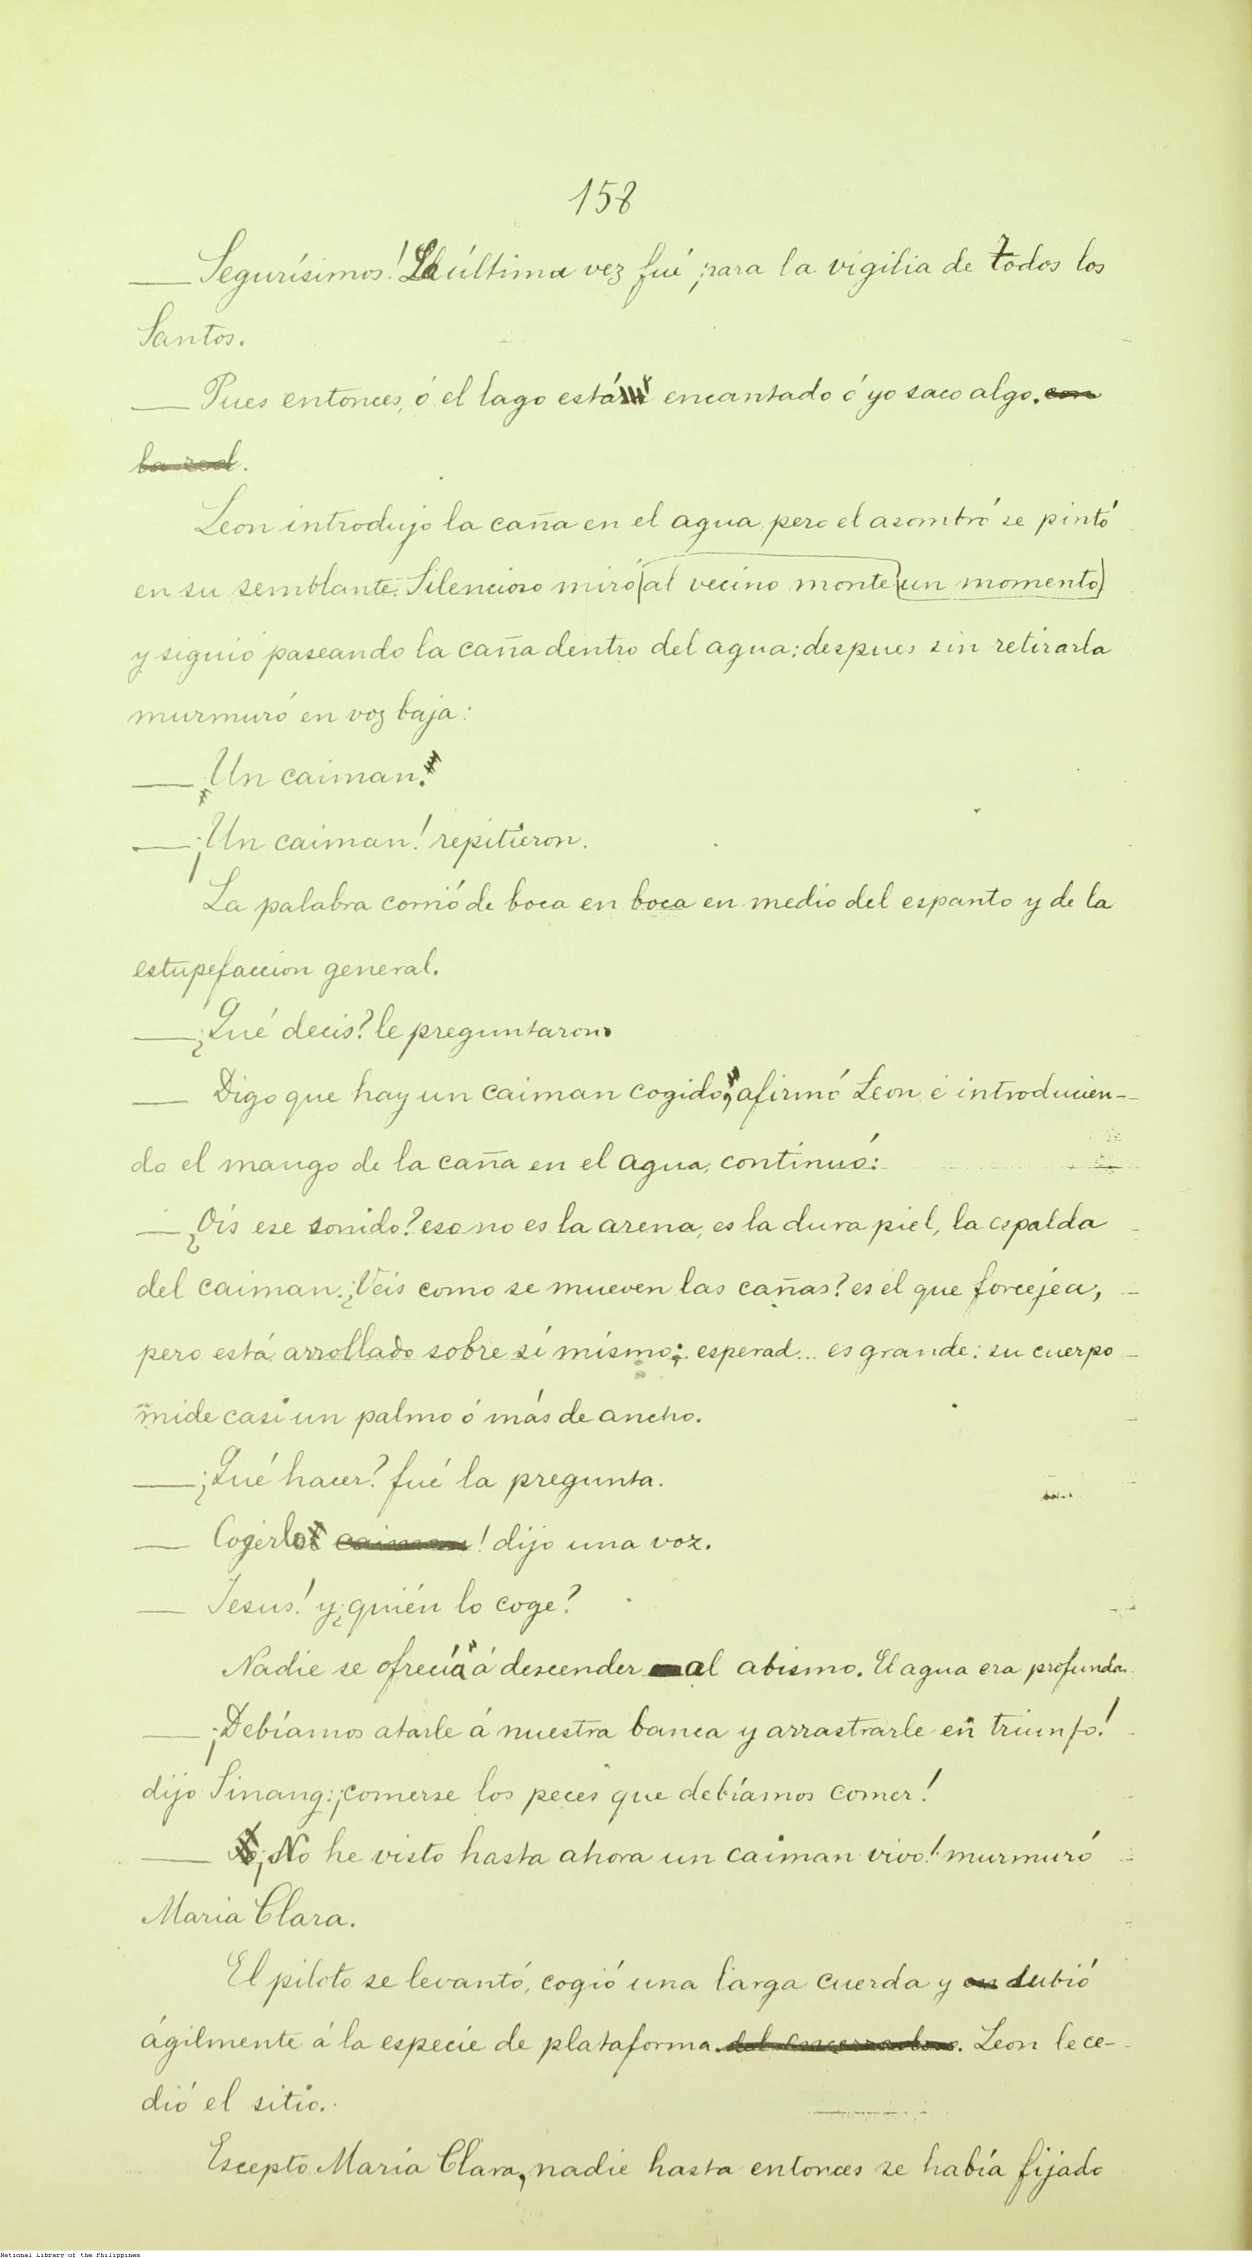 158
— Segurísimos! La última vez fué para la vigilia de todos los
Santos.
— Pues entonces, ó el lago está encantado ó yo saco algo. con
la red.
Leon introdujo la caña en el agua, pero el asombró se pintó
en su semblante. Silencioso miró [al vecino monte] [un momento]
y siguió paseando la caña dentro del agua: despues sin retirarla
murmuró en voz baja:
— ¡Un caiman.
— ¡Un caiman! repitieron.
La palabra corrió de boca en boca en medio del espanto y de la
estupefaccion general.
— ¿Qué decis? le preguntaron.
— Digo que hay un caiman cogido, afirmó Leon é introducien-
do el mango de la caña en el agua, continuó:
— ¿Ois ese sonido? eso no es la arena, es la dura piel, la espalda
del caiman. ¿Veis como se mueven las cañas? es él que forcejea,
pero está arrollado sobre sí mismo; esperad... es grande: su cuerpo
mide casi un palmo ó más de ancho.
— ¿Qué hacer? fué la pregunta.
— Cogerlo caiman! dijo una voz.
— Jesus! y ¿quién lo coge?
Nadie se ofrecía á descender al abismo. El agua era profunda.
— ¡Debíamos atarle á nuestra banca y arrastrarle en triunfo!
dijo Sinang: ¡comerse los peces que debíamos comer!
— ¡No he visto hasta ahora un caiman vivo! murmuró
Maria Clara.
El piloto se levantó, cogió una larga cuerda y subió
ágilmente á la especie de plataforma. del encerradero. Leon le ce-
dió el sitio.
Escepto María Clara, nadie hasta entonces se había fijado
National Library of the Philippines